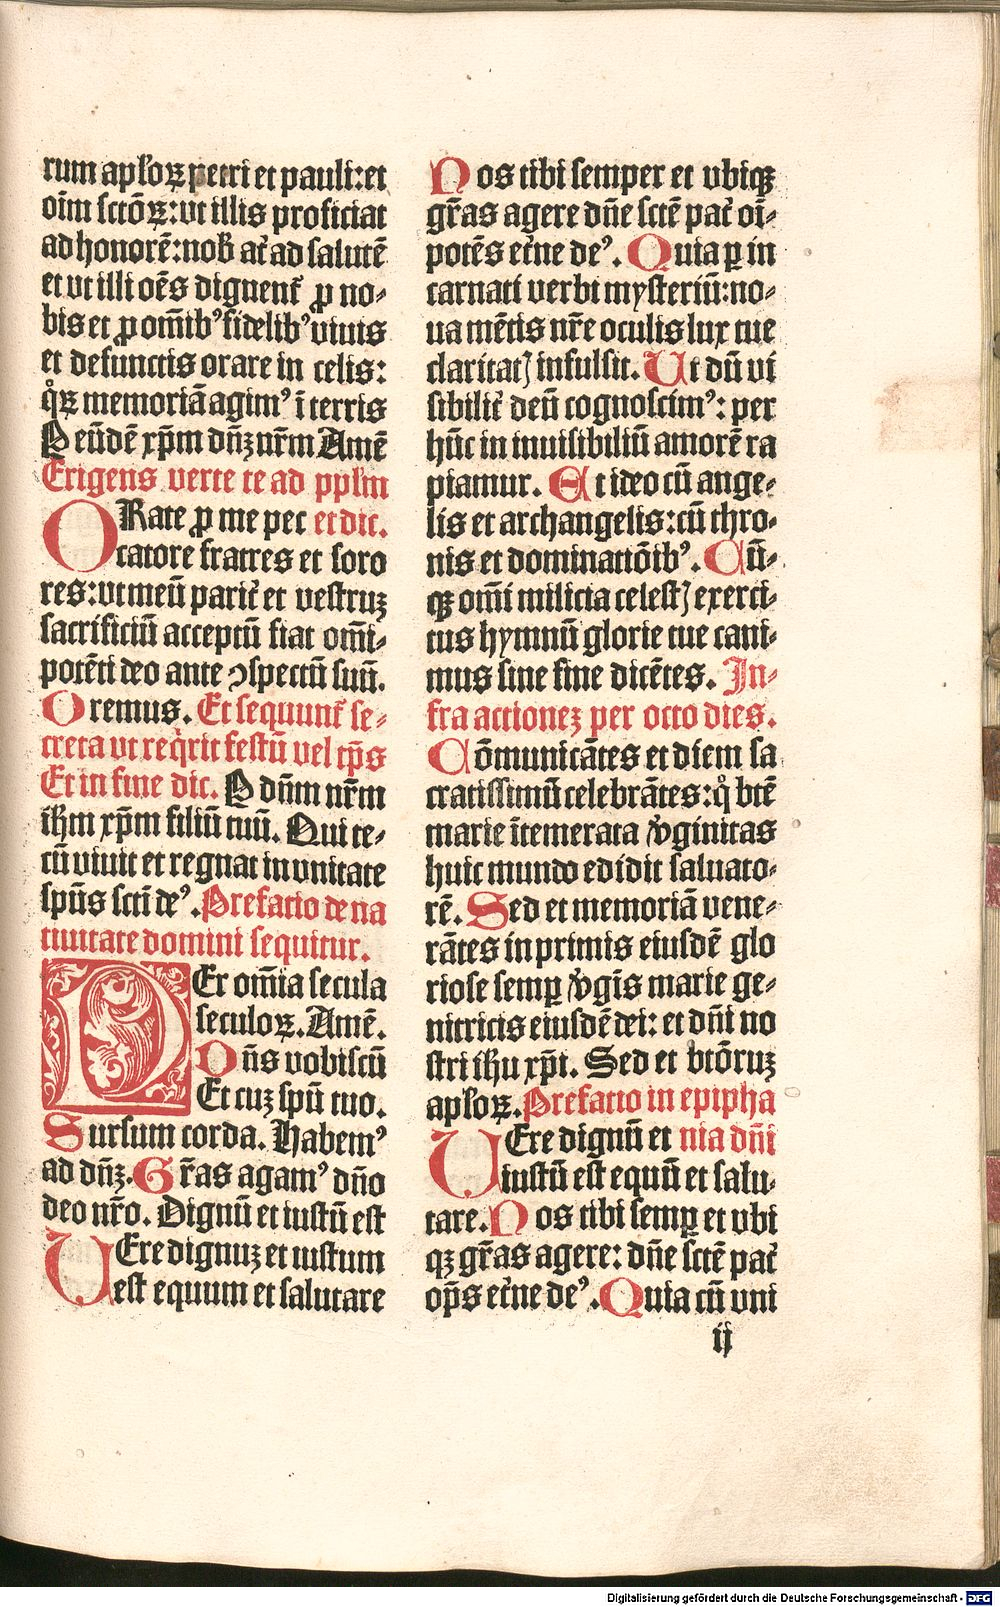 rum aploꝝ petri et pauli: et
oīm sctōꝝ: vt illis proficiat
ad honorē: nob̄ at̄ ad salutē
et vt illi oēs dignent̄ ꝓ no⸗
bis et ꝓ om̄ib⁹ fidelib⁹ viuis
et defunctis orare in celis:
q̊ꝝ memoriā agim⁹ ī terris
P eūdē xp̄m dn̄ꝫ nr̄m Amē
Erigens verte te ad pplm̄
ORate ꝓ me pec et dic.
catore fratres et soro
res: vt meū parit̄ et vestruꝫ
sacrificiū acceptū fiat om̄i⸗
potēti deo ante ꝯspectū suū.
Oremus. Et sequunt̄ se⸗
creta vt req̄rit festū vel tp̄s
Et in fine dic. P dn̄m nr̄m
ih̄m xp̄m filiū tuū. Qui te⸗
cū viuit et regnat in vnitate
sp̄us sctī de⁹. Prefatio de na
tiuitate domini sequitur.
PEr om̄ia secula
seculoꝝ. Amē.
Dn̄s vobiscū
Et cuꝫ sp̄u tuo.
Sursum corda. Habem⁹
ad dn̄ꝫ. Gr̄as agam⁹ dn̄o
deo nr̄o. Dignū et iustū est
UEre dignuꝫ et iustum
est equum et salutare
Nos tibi semper et vbiqꝫ
gr̄as agere dn̄e sctē pat̄ oī⸗
potēs et̄ne de⁹. Quia ꝑ in
carnati verbi mysteriū: no⸗
ua mētis nr̄e oculis lux tue
claritatꝭ infulsit. Ut dū vi
sibilit̄ deū cognoscim⁹: per
hūc in inuisibiliū amorē ra
piamur. Et ideo cū ange⸗
lis et archangelis: cū thro⸗
nis et dominatiōib⁹. Cū⸗
qꝫ om̄i milicia celestꝭ exerci⸗
tus hymnū glorie tue cani⸗
mus sine fine dicētes. In⸗
fra actioneꝫ per octo dies.
Cōmunicātes et diem sa
cratissimū celebrātes: q̊ btē
marie ītemerata v̓ginitas
huic mundo edidit saluato⸗
rē. Sed et memoriā vene⸗
rātes in primis eiusdē glo
riose semꝑ v̓gīs marie ge⸗
nitricis eiusdē dei: et dn̄i no
stri ih̄u xp̄i. Sed et btōruꝫ
aploꝝ. Prefatio in epipha
UEre dignū et nia dn̄i
iustū est equū et salu⸗
tare. Nos tibi semꝑ et vbi
qꝫ gr̄as agere: dn̄e sctē pat̄
op̄s et̄ne de⁹. Quia cū vni
ij
Digitalisierung gefördert durch die Deutsche Forschungsgemeinschaft - DFG